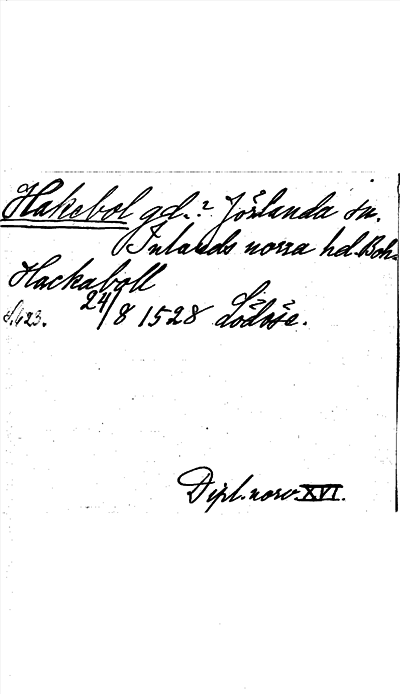 Hakebol gd.? Jörlanda sn.
Inlands norra hd. Boh.
Hackaboll
S. 623. 24/8 1528 Lödöse.
Dipl. norv. XVI.